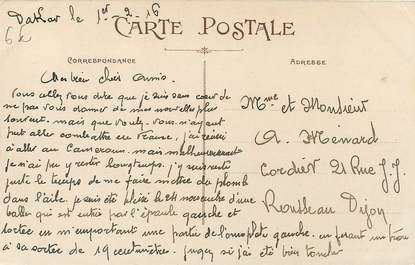 Dakar le 1er 2-16
6x
CARTE POSTALE
CORRESPONDANCE
ADRESSE
Chers bien chers amis.
Vous allez vous dire que je suis sans cœur de
ne pas vous donner de mes nouvelles plus
souvent. mais que voulez-vous n'ayant
put aller combattre en France, j'ai réussi
à aller au Cameroun mais malheureusement
je n'ai pu y rester longtemps. j'y suis resté
juste le temps de me faire mettre du plomb
dans l'aile. je suis été blessé le 21 novembre d'une
balle qui est entrée par l'épaule gauche et
sortie en m'emportant une partie de l'omoplate gauche. en faisant un trou
à sa sortie de 19 centimètres. jugez si j'ai été bien
Mme et Monsieur
A. Ménard
Cordier 21 Rue J.J.
Rousseau Dijon